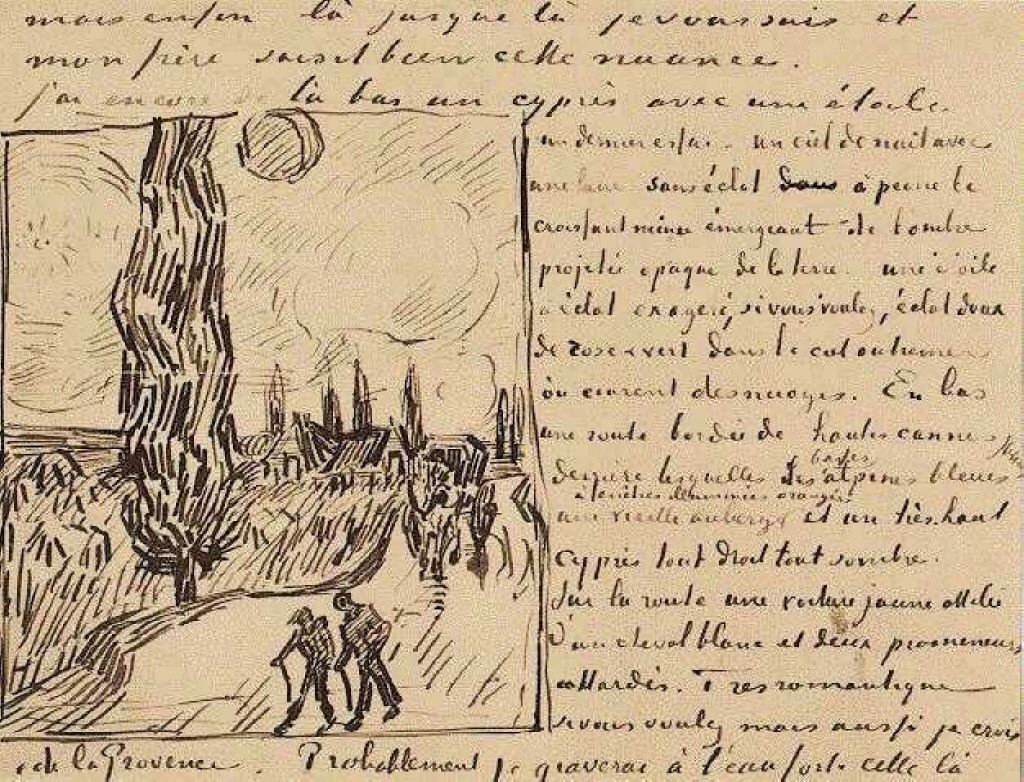 mais enfin là jusque là je vous sais et
mon frère saisit bien cette nuance.
j'ai encore de là bas un cyprès avec une étoile.
un dernier essai – un ciel de nuit avec
une lune sans éclat dans à peine le
croissant mince émergeant de l'ombre
projetée opaque de la terre – une étoile
à éclat exagéré, si vous voulez, éclat doux
de rose & vert dans le ciel outremer
où courent des nuages. En bas
une route bordée de hautes cannes jaunes
derrière lesquelles les basses alpines bleues
une vieille auberge à fenêtres illuminées orangée et un très haut
cyprès tout droit tout sombre.
Sur la route une voiture jaune attelée
d'un cheval blanc et deux promeneurs
attardés. Très romantique
si vous voulez mais aussi je crois
de la Provence. Probablement je graverai à l'eau forte celle là